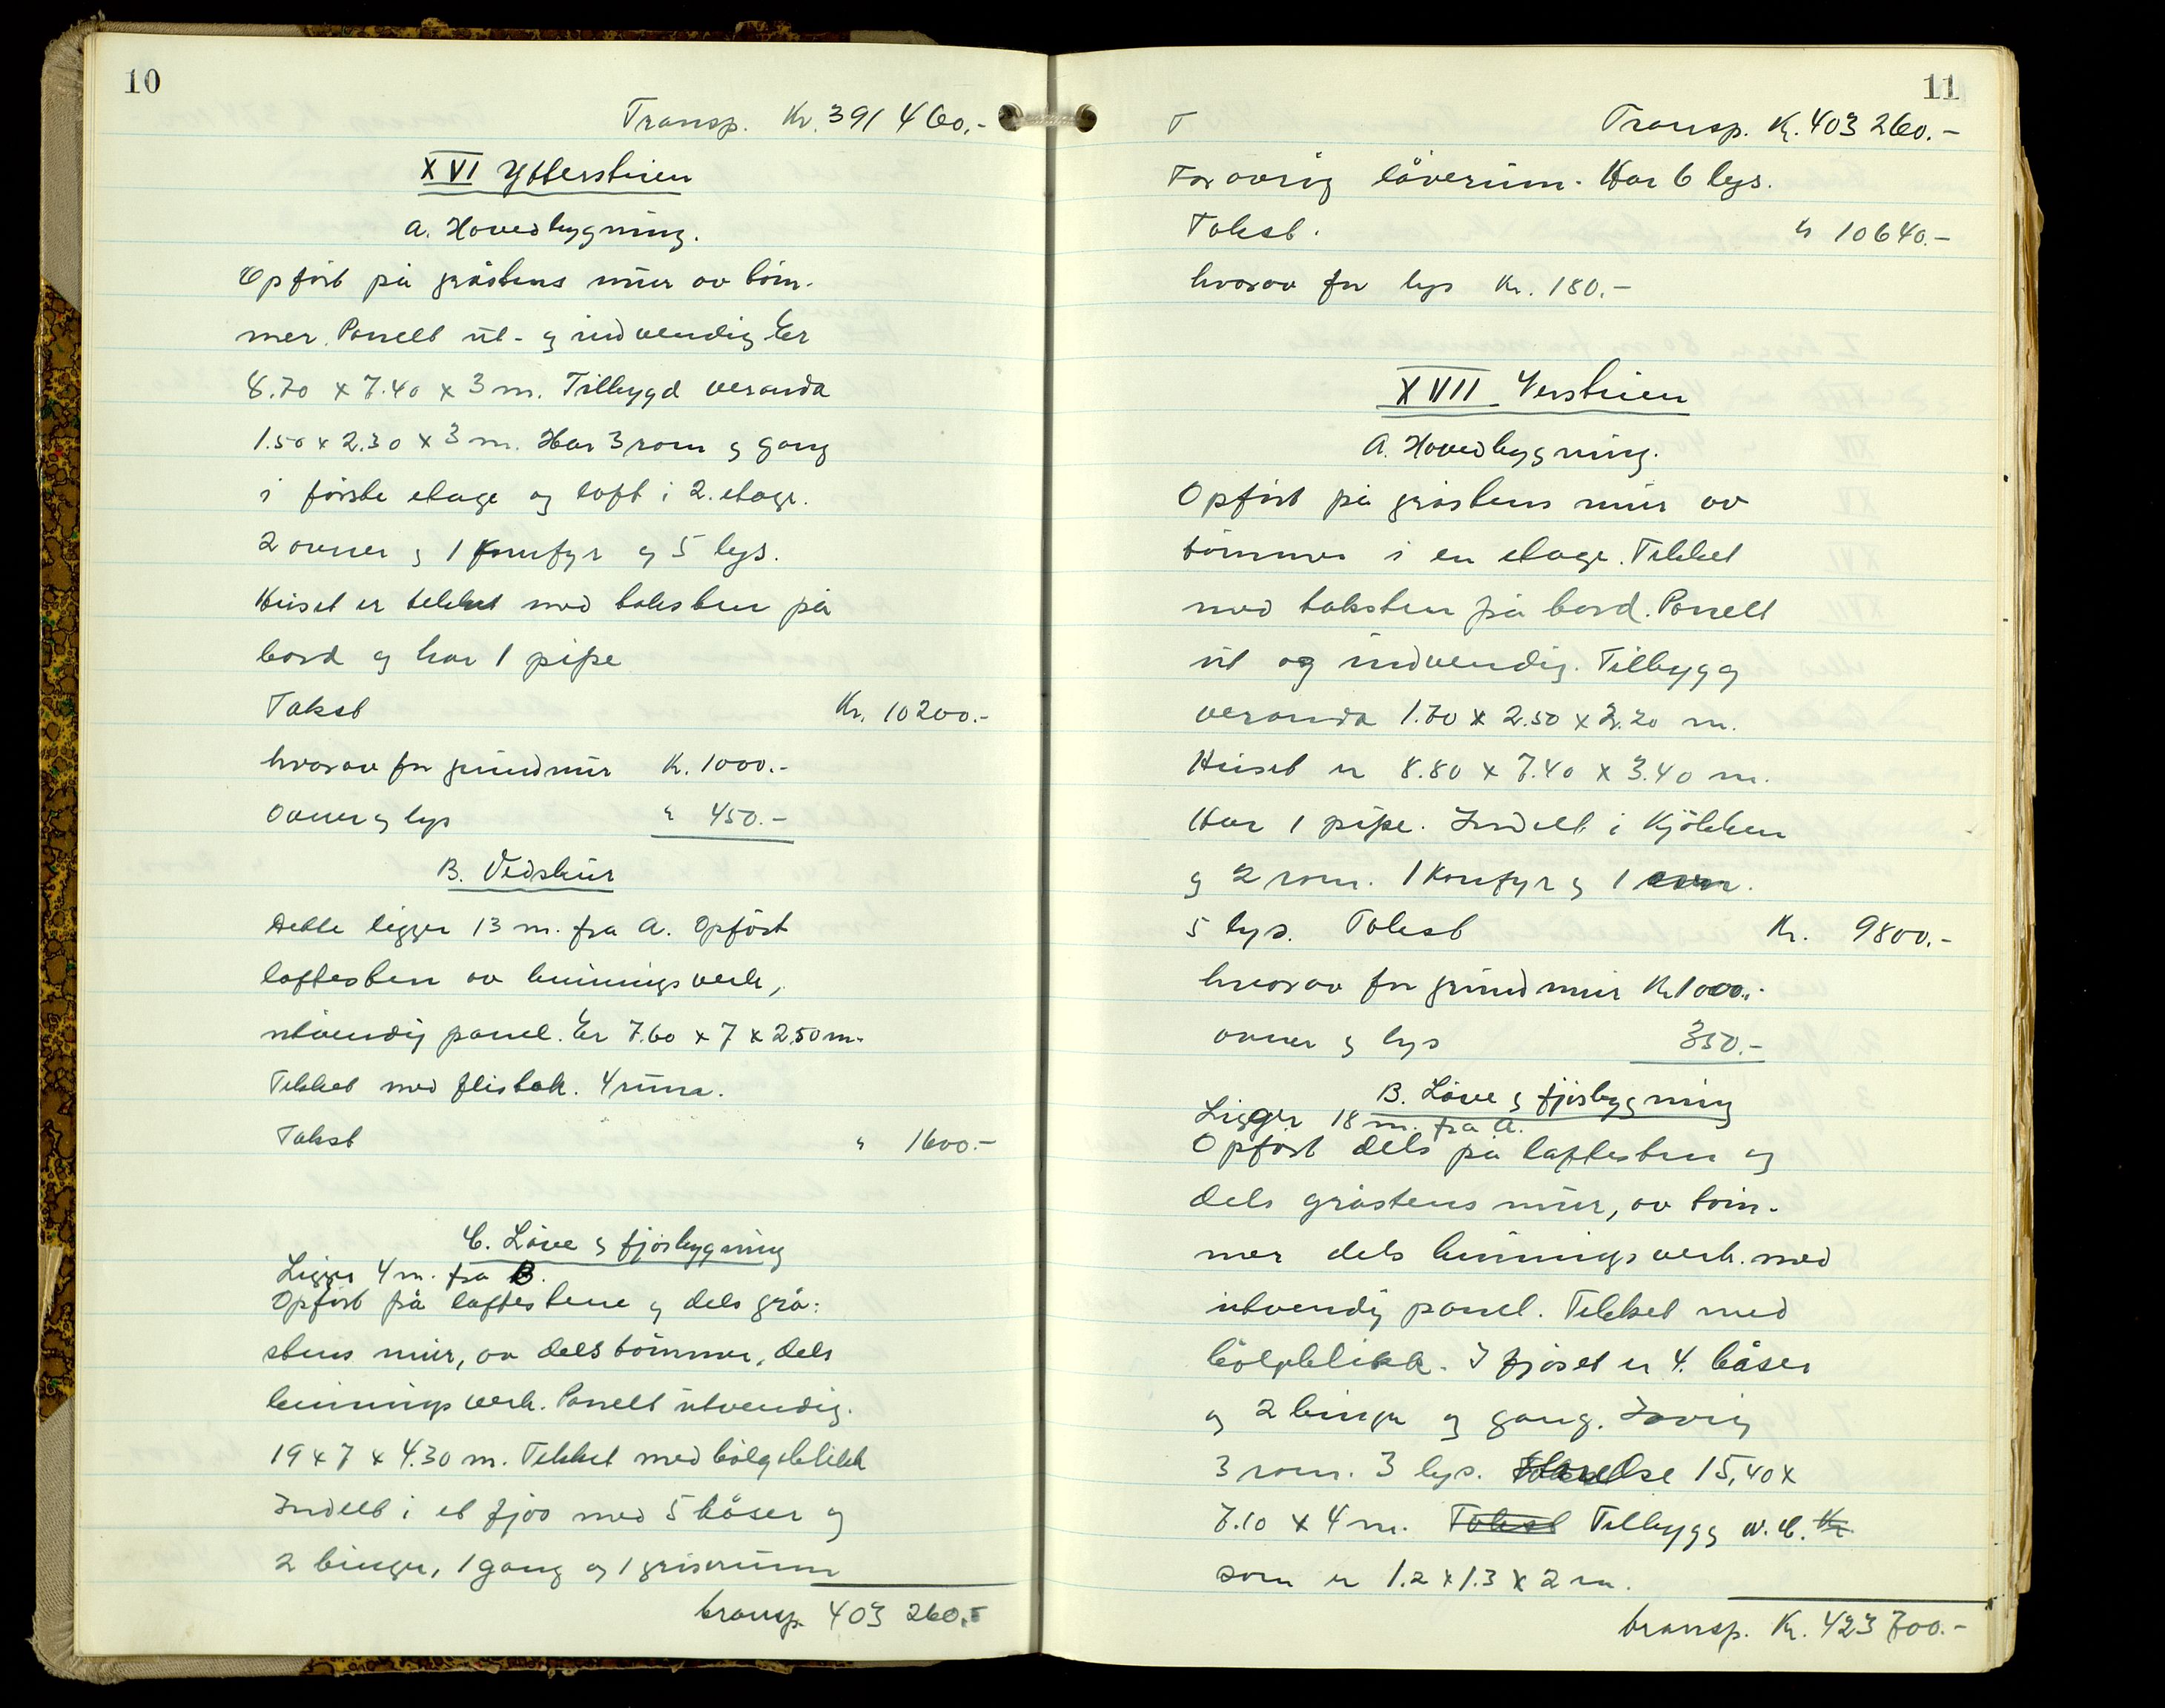 10
Transp. Kr. 391 460.-
XVI Ytterstuen
A. Hovedbygning.
Opført på gråstens mur av töm-
mer. Panelt ut- og indvendig Er
8.70 x 7.40 x 3 m. Tilbygd veranda
1.50 x 2.30 x 3 m. Har 3 rom og gang
i første etage og loft i 2. etage.
2 ovner og 1 Komfyr og 5 lys.
Huset er tekket med taksten på
bord og har 1 pipe
Takst Kr. 10200.-
hvorav for grundmur Kr. 1000.-
Ovner og lys " 450.-
B. Vedskur
Dette ligger 13 m. fra A. Opført
løftesten av binningsverk,
utvendig panel. Er 7.60 x 7 x 2.50 m.
Tekket med flistak. 4 rums.
Takst " 1600.-
C. Låve og fjösbygning
Ligger 4 m. fra B.
Opført på løftestene og dels grå-
stens mur, av dels tömmer, dels
binningsverk. Panelt utvendig.
19 x 7 x 4.30 m. Tekket med bölgeblikk
Indelt i et fjös med 5 båser og
2 binger, 1 gang og 1 griserum
transp. 403 260.-
11
T Transp. Kr. 403 260.-
For øvrig låverum. Har 6 lys.
Takst. " 10640.-
hvorav for lys Kr. 180.-
XVII Verstuen
A. Hovedbygning.
Opført på gråstens mur av
tömmer i en etage. Tekket
med taksten på bord. Panelt
ut og indvendig. Tilbygg
veranda 1.70 x 2.50 x 2.20 m.
Huset er 8.80 x 7.40 x 3.40 m.
Har 1 pipe. Indelt i Kjökken
og 2 rom. 1 Komfyr og 1 ovn.
5 lys. Takst Kr. 9800.-
hvorav for grundmur Kr 1000.-
ovner og lys 350.-
B. Låve og fjösbygning
Ligger 18 m. fra A.
Opført dels på løftesten og
dels gråstens mur, av töm-
mer dels binningsverk. med
utvendig panel. Tekket med
bölgeblikk. I fjöset er 4. båser
og 2 binger og gang. Iøvrig
3 rom. 3 lys. Størrelse 15,40 x
7.10 x 4 m. Takst Tilbygg W.C. Kr
som er 1.2 x 1.3 x 2 m.
transp. Kr. 423 700.-